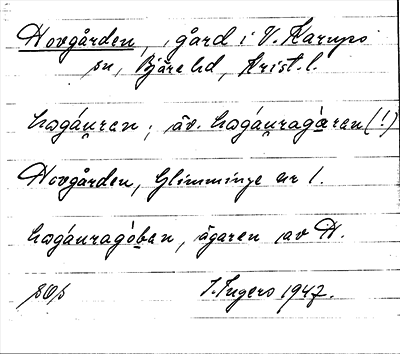 Hovgården, gård i V. Karups
sn, Bjäre hd, Krist. l.
hωgáu̯ran; äv. hωgáu̯ragå̀ran (!)
Hovgården, Glimminge nr 1.
hωgáuragòban, ägaren av H.
I. Ingers 1947.